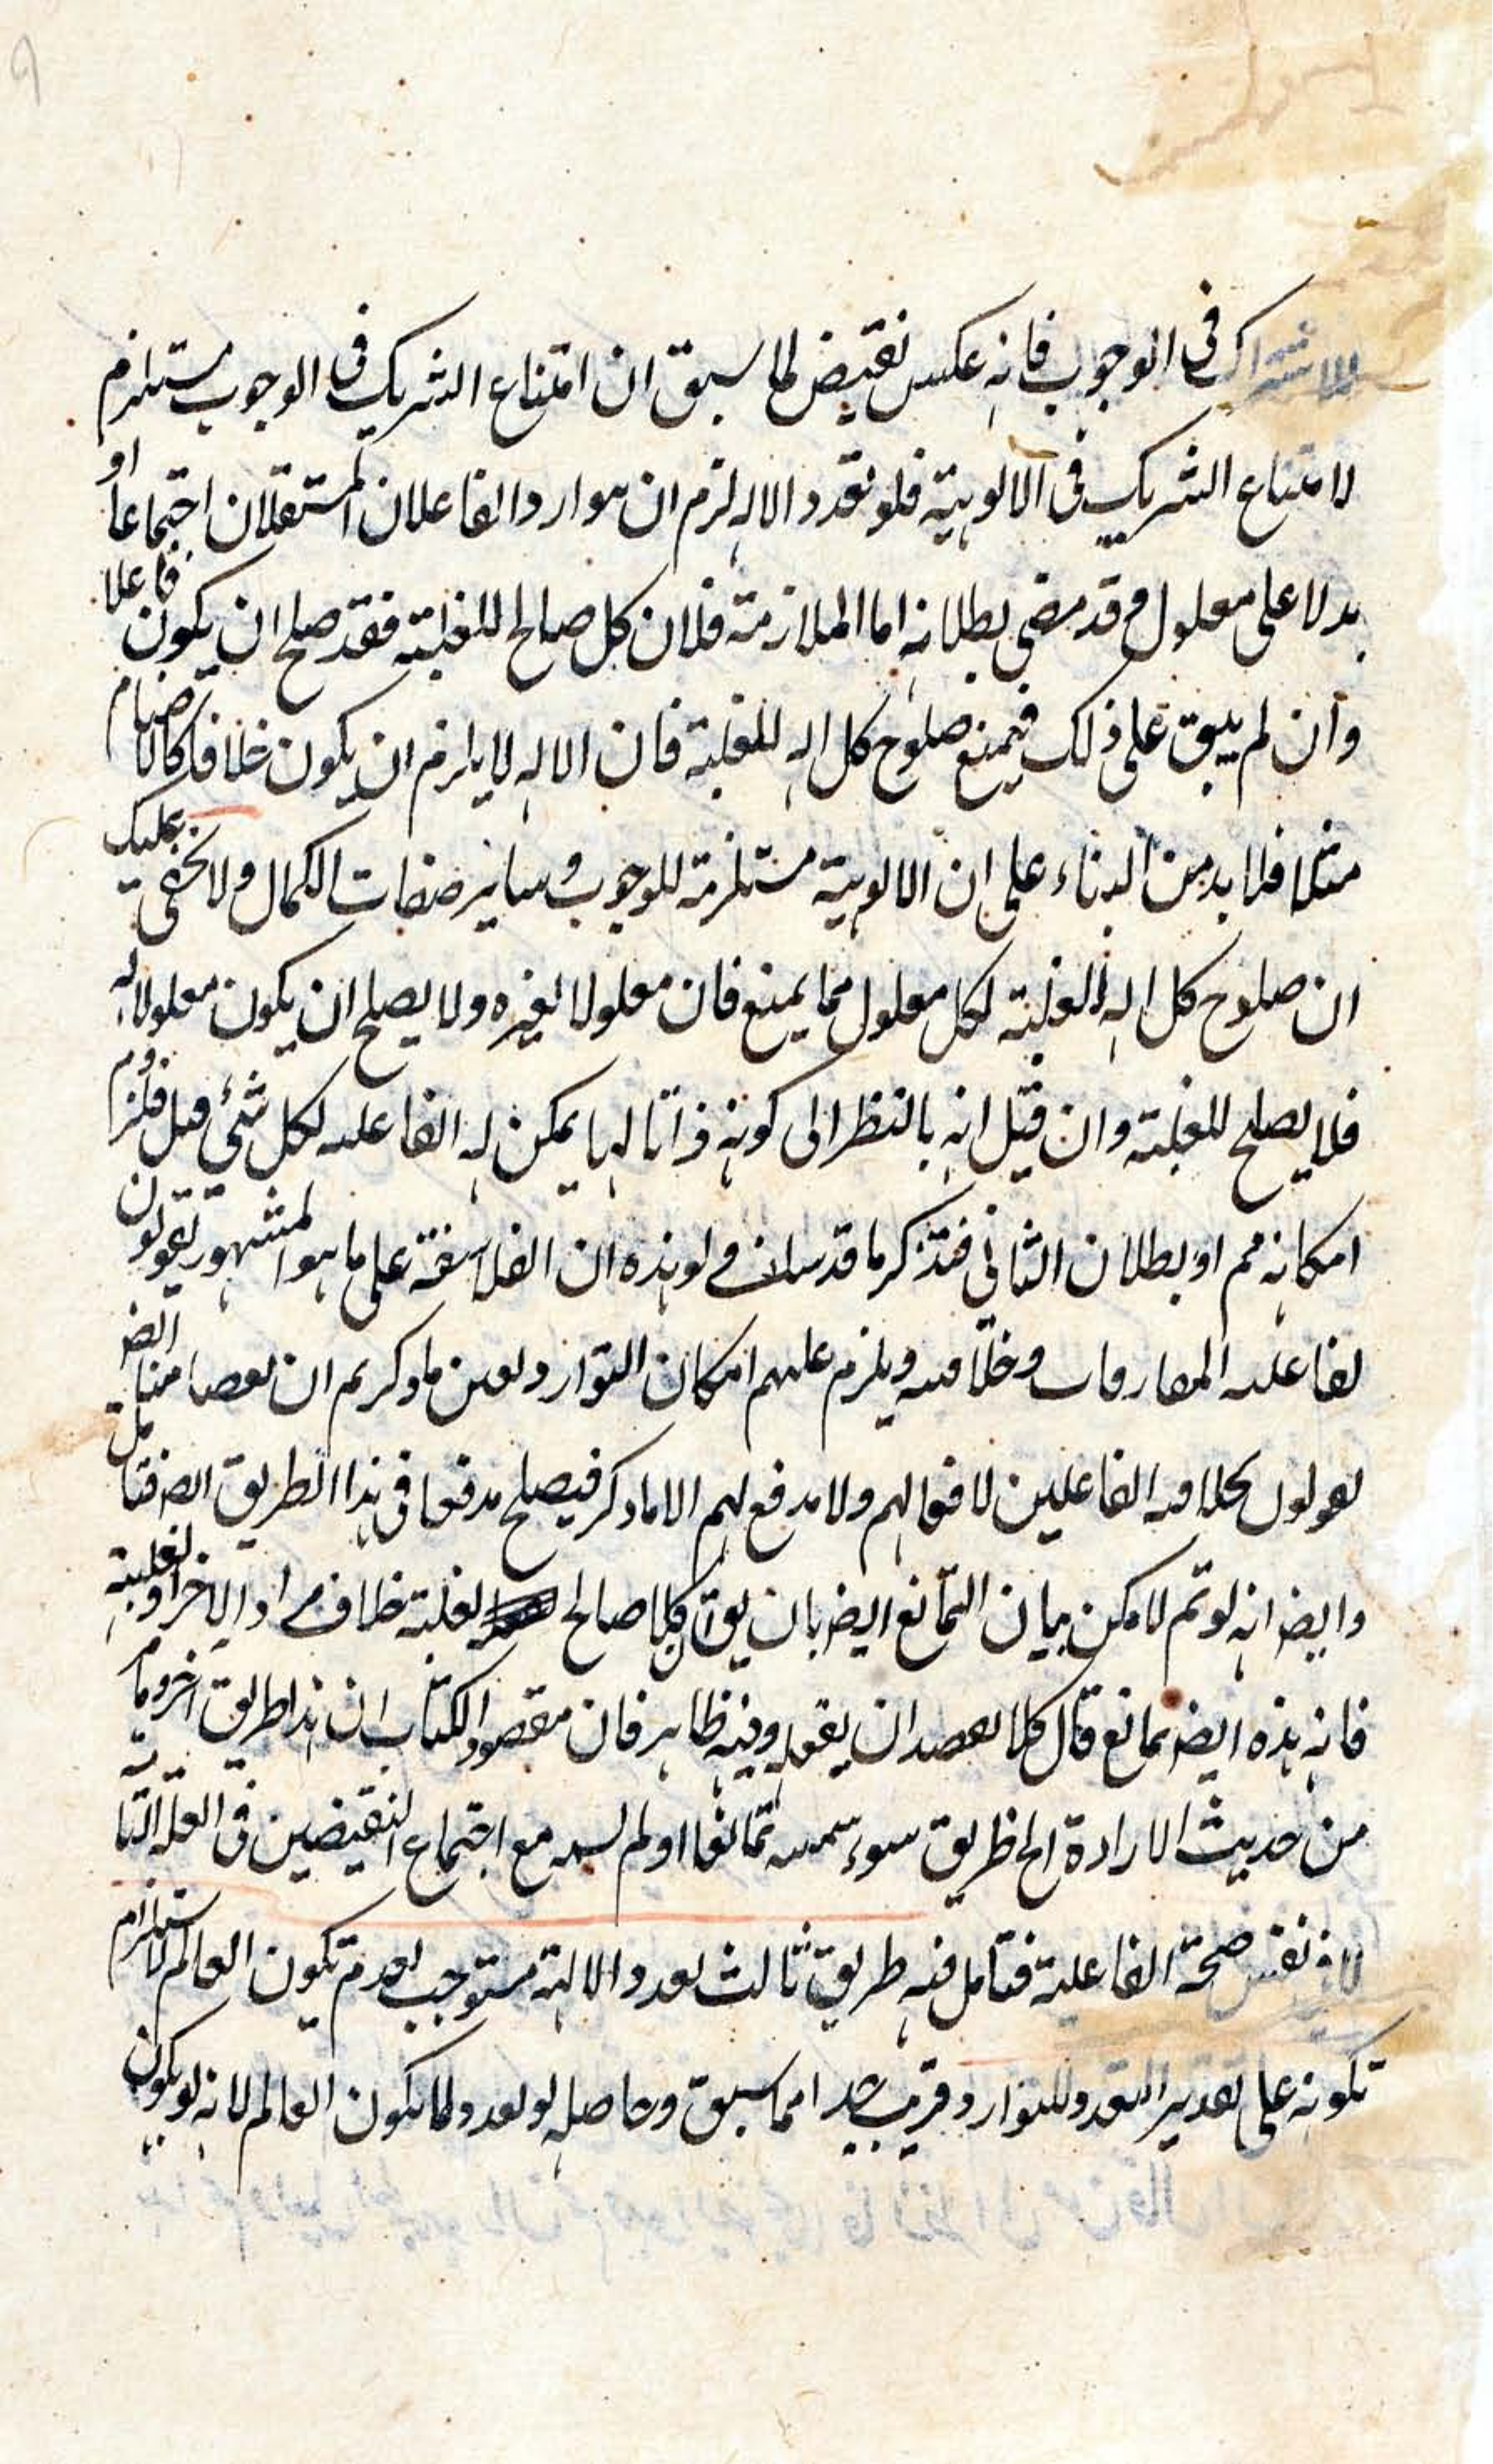 للاشتراك في الوجوب فانه عكس نقيض لما سبق ان امتناع الشريك في الوجوب مستلزم
لامتناع الشريك في الالوهية فلو تعدد الاله لزم ان توارد الفاعلان المستقلان اجتماعا او
بدلا على معلول وقد مضى بطلانه اما الملازمة فلان كل صالح للعلية فقد صلح ان يكون فاعلا
وان لم يبق على ذلك فيمنع صلوح كل اله للعلية فان الاله لا يلزم ان يكون خلاقا كالاصنام
مثلا فلا بد من البناء على ان الالوهية مستلزمة للوجوب وسائر صفات الكمال ولا يخفى عليك
ان صلوح كل اله العلية لكل معلول مما يمنع فان معلولا لغيره ولا يصلح ان يكون معلولا له
فلا يصلح للعلية وان قيل انه بالنظر الى كونه ذاتا الها يمكن له الفاعليه لكل شئ قبل فلزوم
امكانه مم او بطلان الثاني فتذكر ما قد سلف ولو هذه ان الفلاسفة على ما هو المشهور يقولون
لفاعليه المفارقات وخلاقيته ويلزم عليهم امكان التوارد ولعين ما ذكر يم ان بعضا منا ايض
يقولون بخلاقيه الفاعلين لافعالهم ولا مدفع لهم الا ما ذكر فيصلح مدفعا في هذا الطريق ايض فتامل
وايض انه لو تم لامكن بيان التمانع ايض بان يق ان كلا صالح لعلية خلاف مراد الاخر او لعلية
فانه هذه ايض تمانع قال كلا يقصد ان يفعل وفيه ظاهر فان مقصود الكتاب ان هذا طريق اخر وما
من حديث الارادة الخ طريق سوء سميته تمانعا او لم تسمه مع اجتماع النقيضين في العلة التامة
لا في نفس صحة الفاعلية فتامل فيه طريق ثالث تعدد الالهة مستوجب لعدم تكون العالم لاستلزام
تكونه على تقدير التعدد للتوارد وقريب جدا مما سبق وحاصله لو تعدد لما تكون العالم لانه لو يكون